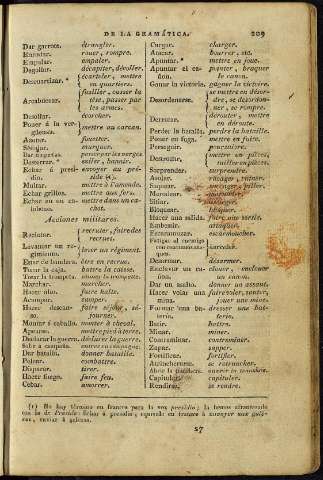 DE LA GRAMÁTICA. 209
Dar garrote. étrangler.
Enrodar. rouer, rompre.
Empalar. empaler.
Degollar. décapiter, décoller.
Descuartizar. * écarteler, mettre en quartiers.
Arcabucear. fusiller, casser la tête, passer par les armes.
Desollar. écorcher.
Poner á la vergüenza. mettre au carcan.
Azotar. fouetter.
marquer.
passer par les verges
Desterrar. * exiler, bannir.
Echar á presidio. envoyer au presidio (1).
Multar. mettre à l'amende.
Echar grillos. mettre aux fers.
Echar en un mettre dans un cachot.
Acciones militares.
Reclutar. recruter, faire des recrues.
Levantar un regimiento. lever un régiment.
Estar de bandera. être en recrue.
Tocar la caja. battre la caisse.
Tocar la trompeta. sonner la trompette.
Marchar. marcher.
Hacer alto. faire halte.
Acampar. camper.
Hacer descanso. faire séjour, séjourner.
Montar á caballo. monter à cheval.
Apearse. mettre pied à terre.
Declarar la guerra. déclarer la guerre.
Salir á campaña. entrer en campagne.
Dar batalla. donner bataille.
Pelear. combattre.
Disparar. tirer.
Hacer fuego. faire feu.
Cebar. amorcer.
Cargar. charger.
Atacar. bourrer, etc.
Apuntar. * mettre en joue.
Apuntar el cañon. pointer, braquer le canon.
Ganar la victoria. gagner la victoire.
Desordenarse. se mettre en désordre, se désordonner, se rompre.
Derrotar. dérouter, mettre en déroute.
Perder la batalla. perdre la bataille.
Poner en fuga. mettre en fuite.
Perseguir. poursuivre.
Destrozar. mettre en pièces, tailler en pièces.
Sorprender. surprendre.
Asolar. ravager, ruiner.
Saquear. saccager, piller.
Merodear. marauder.
Sitiar. assiéger.
Bloquear. bloquer.
Hacer una salida. faire une sortie.
Embestir. attaquer.
Escaramuzar. escarmoucher.
Fatigar al enemigo harceler.
Desarmar. désarmer.
Enclavar un cañon. clouer, enclouer un canon.
Dar un asalto. donner un assaut.
Hacer volar una mina. faire voler, sauter, jouer une mine.
Formar una batería. dresser une batterie.
Batir. battre.
Minar. miner.
Contraminar. contreminer.
Zapar. sapper.
Fortificar. fortifier.
Atrincherarse. se retrancher.
Abrir la trinchera. ouvrir la tranchée.
Capitular. capituler.
Rendirse. se rendre.
(1) No hay término en frances para la voz presidio;
27